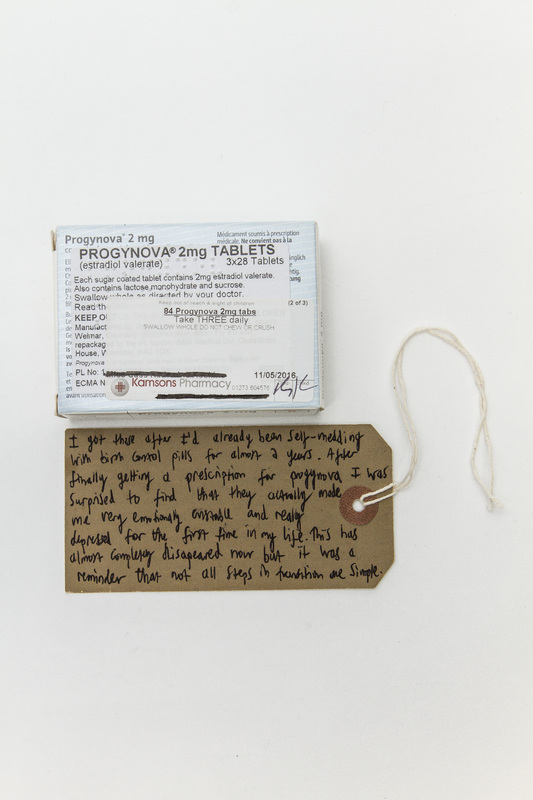 Progynova® 2 mg
Médicament soumis à prescription
médicale. Ne convient pas à la
PROGYNOVA® 2mg TABLETS
(estradiol valerate) 3x28 Tablets
Each sugar coated tablet contains 2mg estradiol valerate.
Also contains lactose monohydrate and sucrose.
Swallow whole as directed by your doctor.
Read th
(2 of 3)
Keep out of reach & sight of children
KEEP O
84 Progynova 2mg tabs
Take THREE daily
Manufact
SWALLOW WHOLE DO NOT CHEW OR CRUSH
Weimar,
repackag
House, W
Progynova
PL No: 1
11/05/2016
ECMA N
Kamsons Pharmacy 01273 604576
I got these after I'd already been self-medding
with birth control pills for almost 2 years. After
finally getting a prescription for progynova I was
surprised to find that they actually made
me very emotionally unstable and really
depressed for the first time in my life. This has
almost completely disapeared now but it was a
reminder that not all steps in transition are simple.